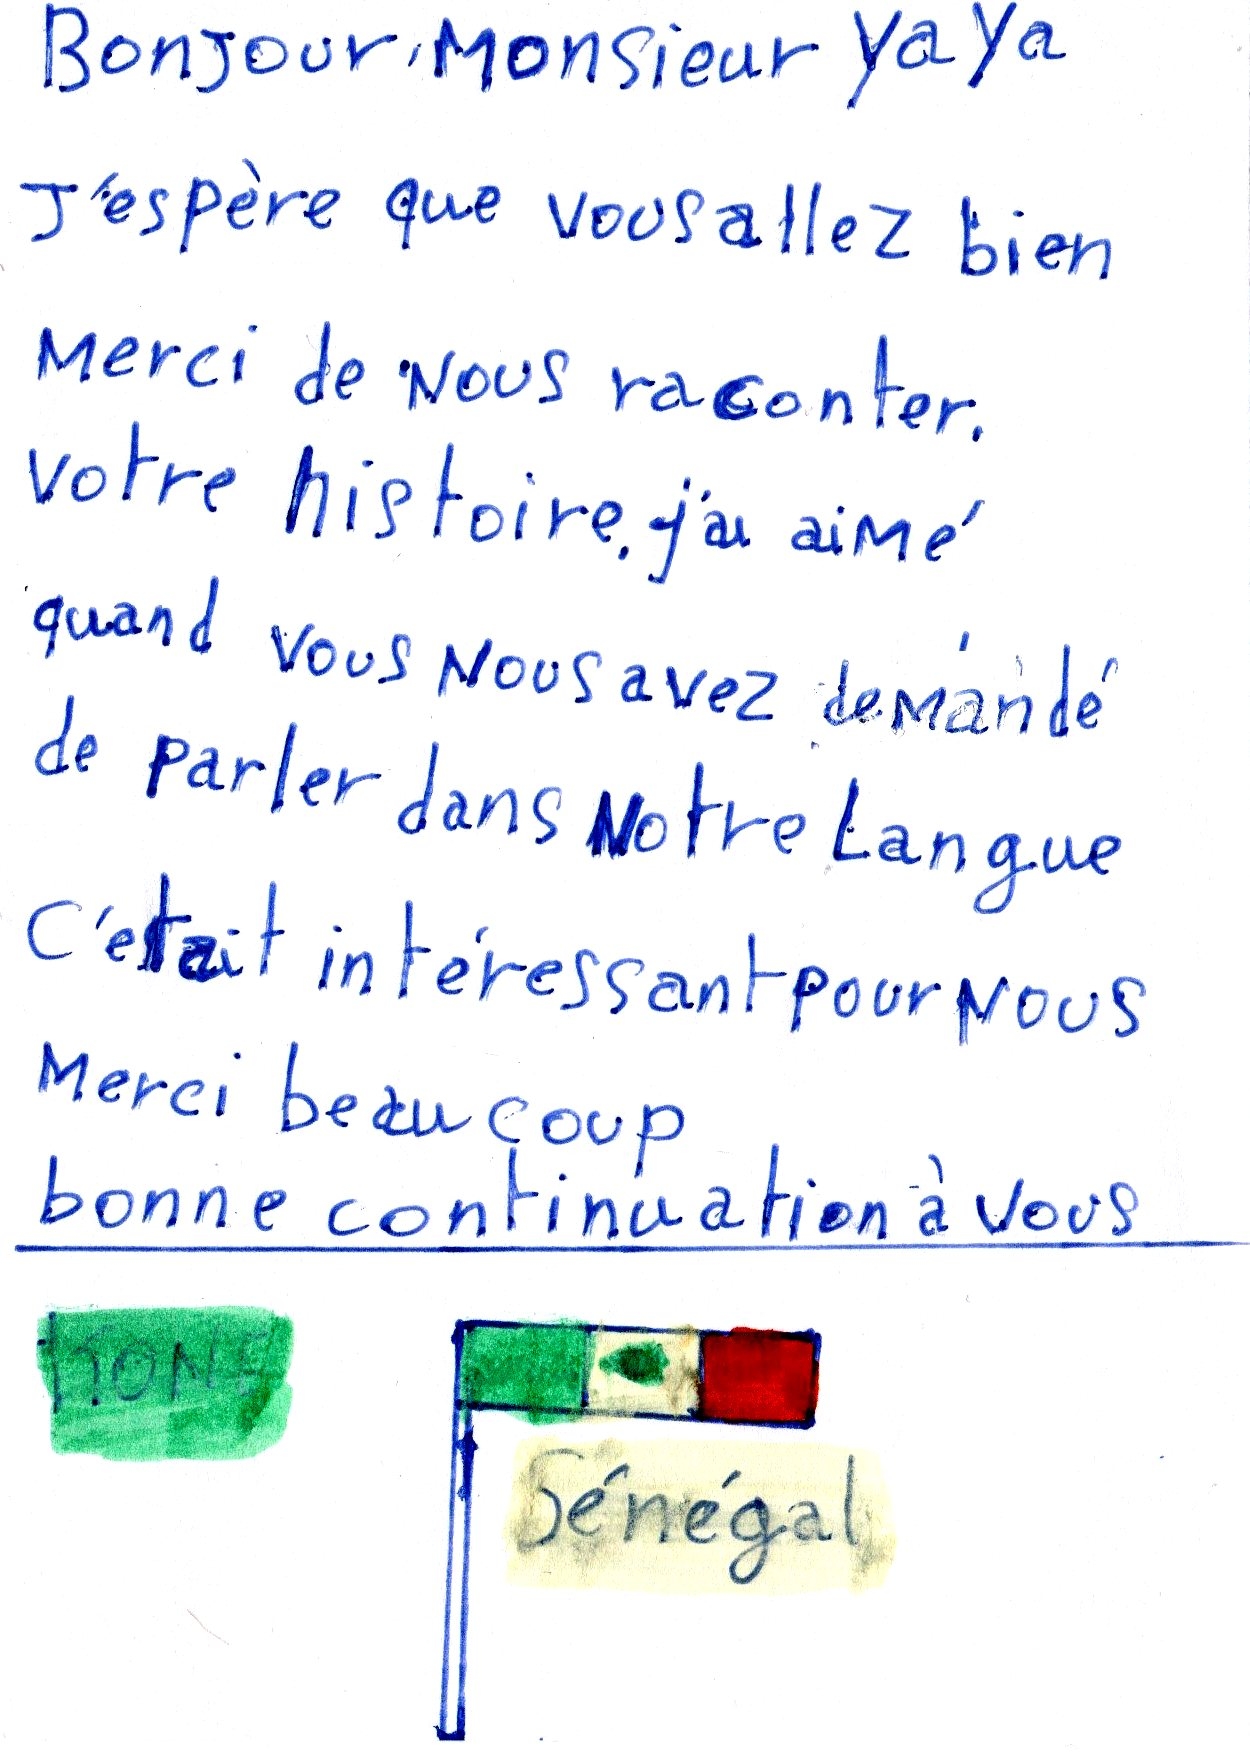 Bonjour, Monsieur YaYa
J'espère que vous allez bien
Merci de Nous raconter.
votre histoire. j'ai aimé
quand vous Nous avez demandé
de parler dans Notre Langue
C'etait intéressant pour Nous
Merci beaucoup
bonne continuation à vous
KONE
Sénégal